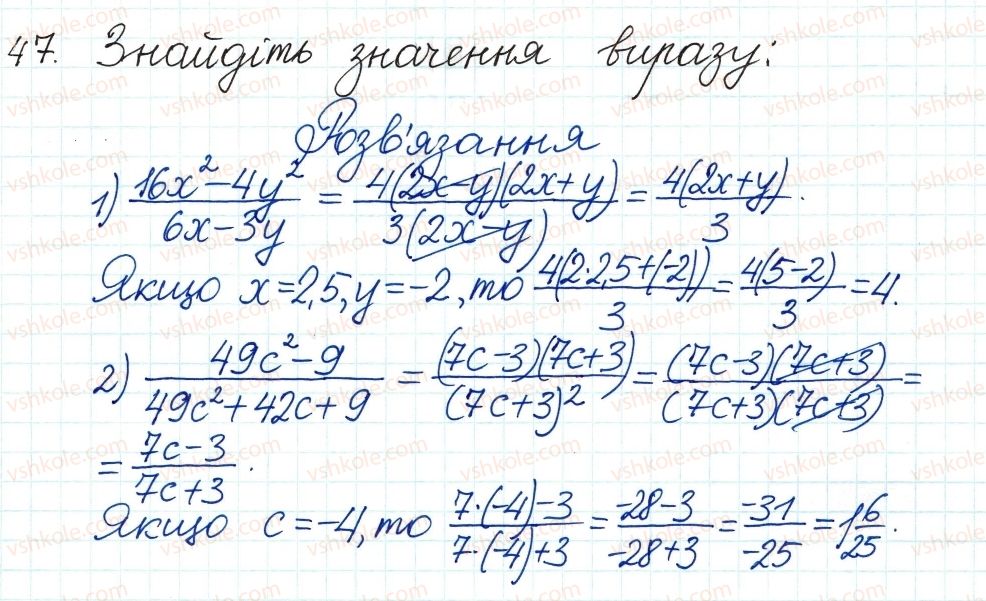 47. Знайдіть значення виразу:
Розв'язання
1) (16x² – 4y²)/(6x – 3y) = (4(2x – y)(2x + y))/(3(2x – y)) = (4(2x + y))/3.
Якщо x = 2,5, y = –2, то (4(2·2,5 + (–2)))/3 = (4(5 – 2))/3 = 4.
2) (49c² – 9)/(49c² + 42c + 9) = ((7c – 3)(7c + 3))/((7c + 3)²) = ((7c – 3)(7c + 3))/((7c + 3)(7c + 3)) =
= (7c – 3)/(7c + 3).
Якщо c = –4, то (7·(–4) – 3)/(7·(–4) + 3) = (–28 – 3)/(–28 + 3) = (–31)/(–25) = 1 6/25.
vshkole.com